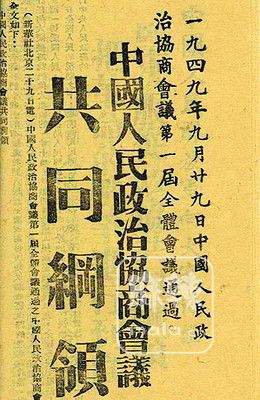 一九四九年九月廿九日中國人民政
治協商會議第一屆全體會議通過
中國人民政治協商會議
共同綱領
（新華社北京二十九日電）中國人民政治協商會議第一屆全體會議通過之中國人民政治協商會
全文如下：
中國人民政治協商會議共同綱領